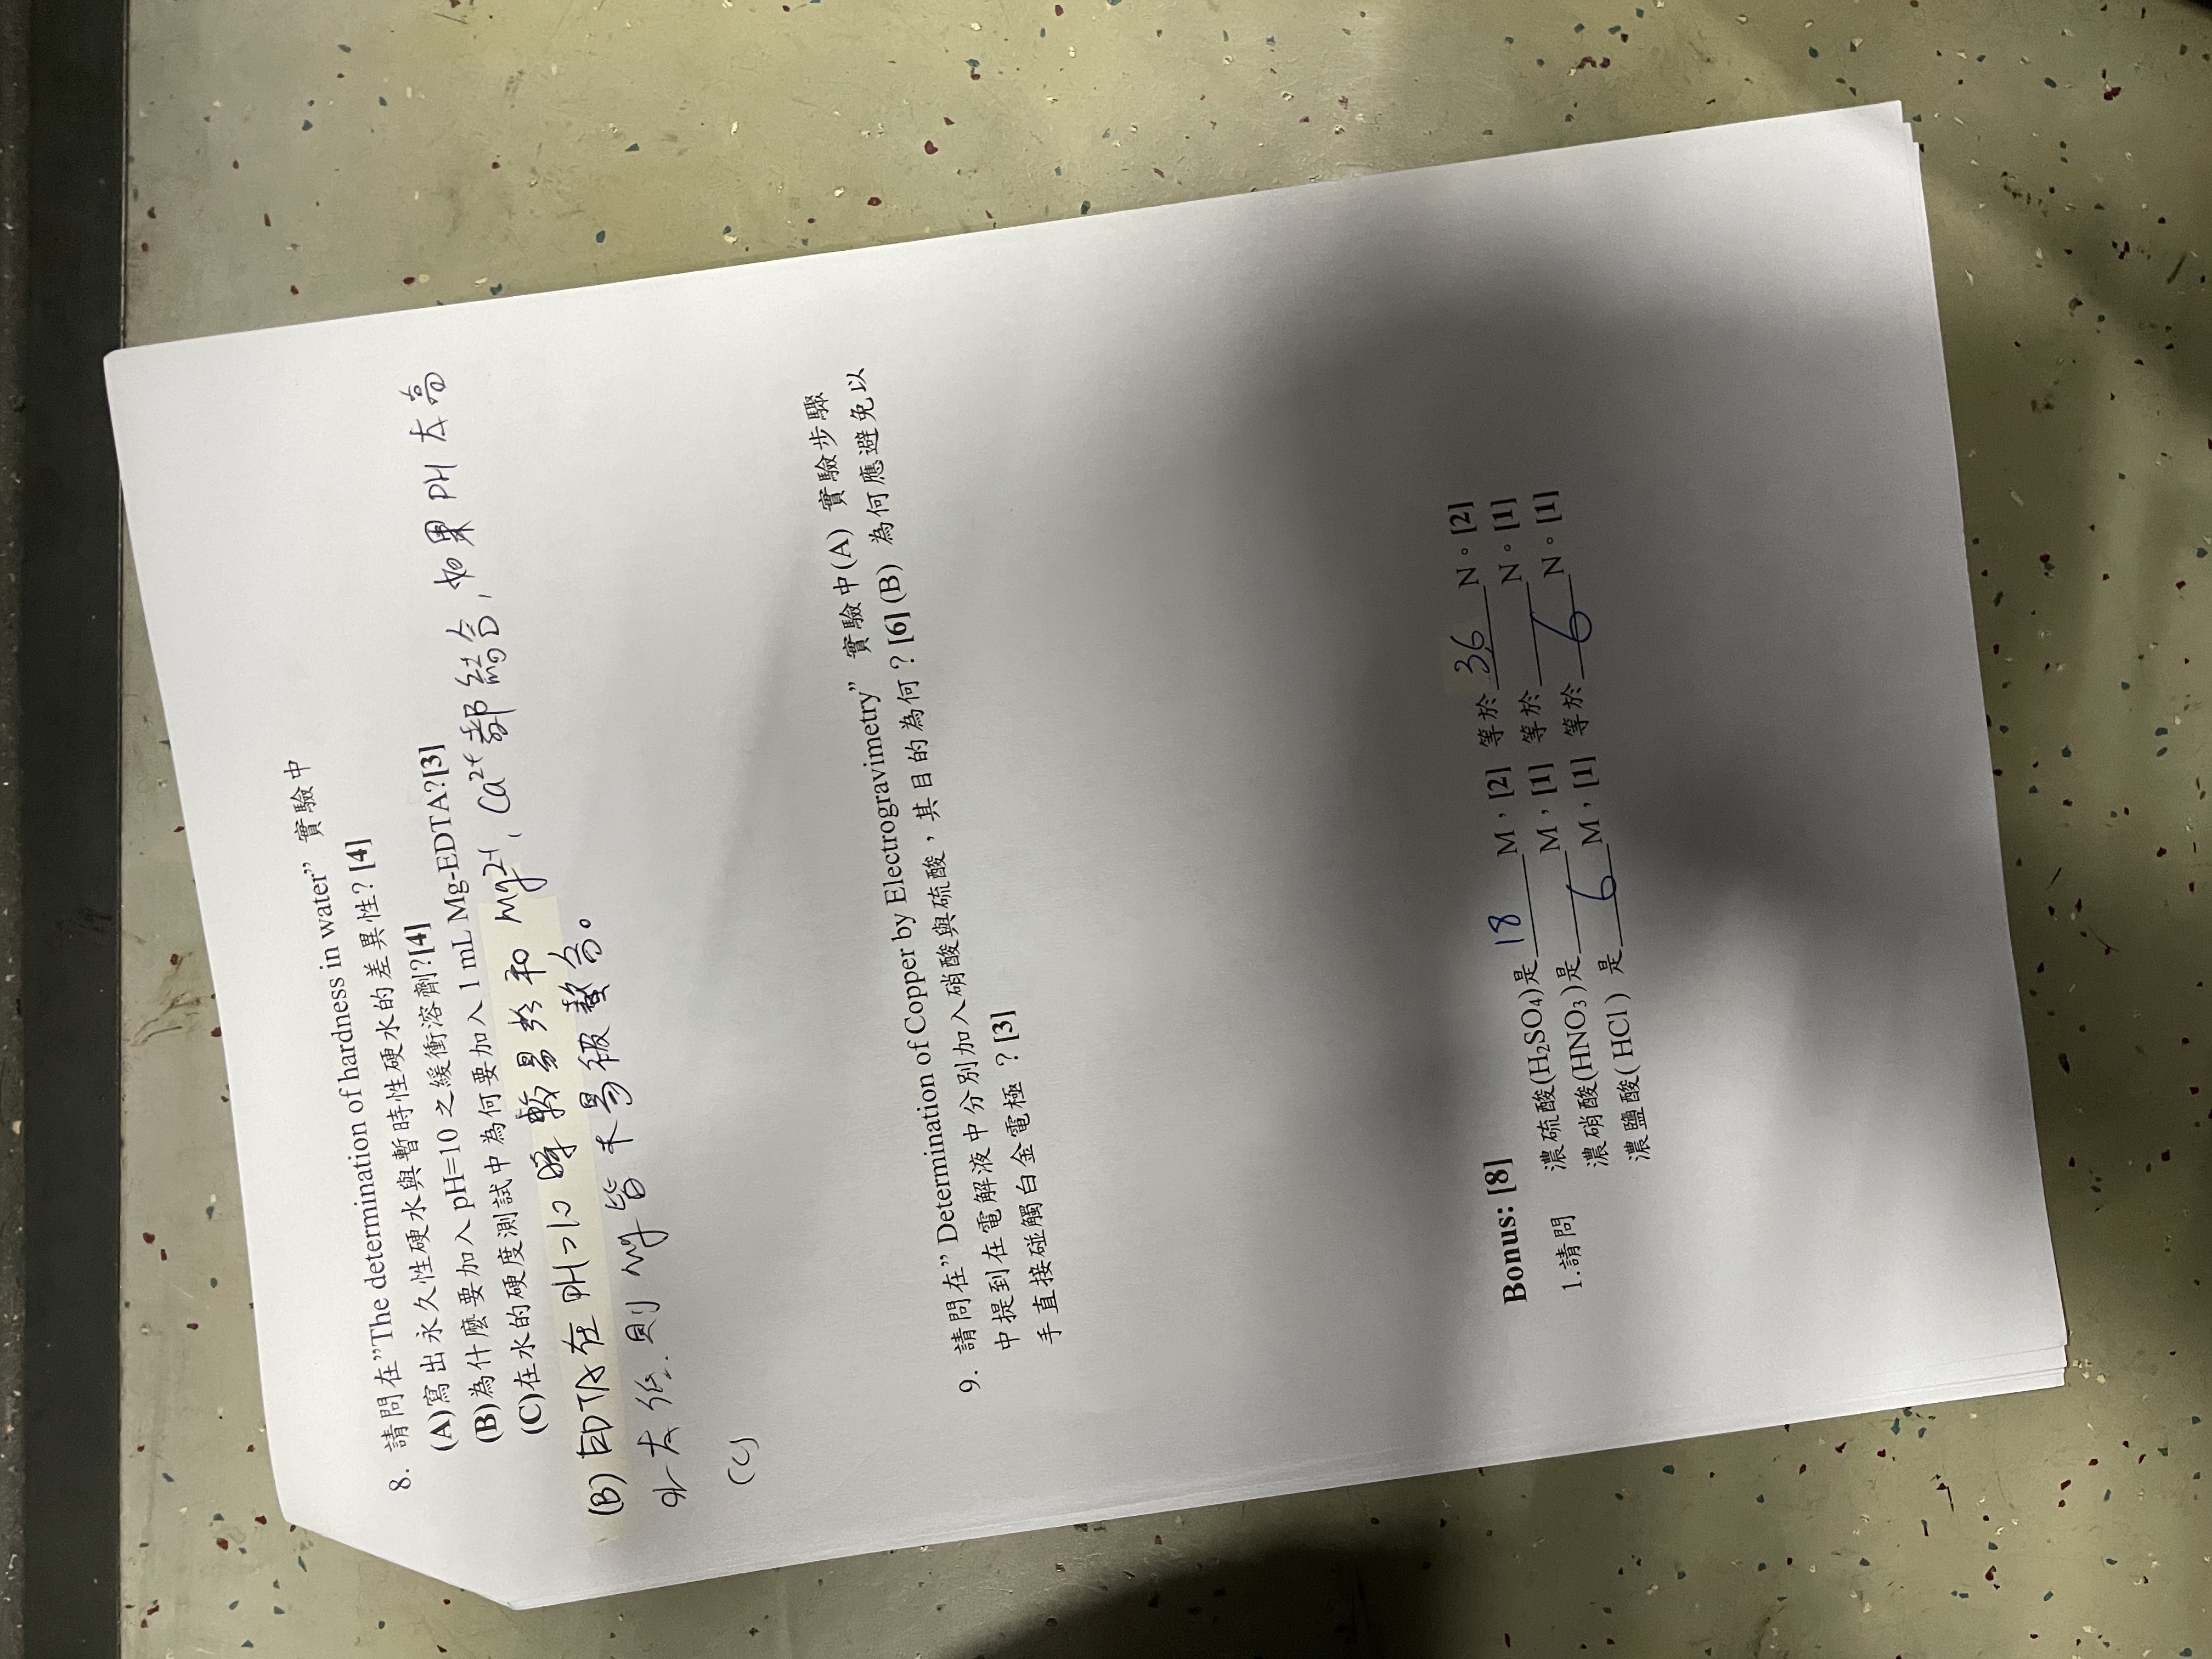 8. 請問在”The determination of hardness in water” 實驗中
(A)寫出永久性硬水與暫時性硬水的差異性? [4]
(B)為什麼要加入 pH=10 之緩衝溶劑?[4]
(C)在水的硬度測試中為何要加入 1 mL Mg-EDTA?[3]
(B) EDTA在 PH=10 時較易於和 Mg2+, Ca2+都結合, 如果 PH 太高
or 太低. 則 Mg皆不易被螯合。
(C)
9. 請問在” Determination of Copper by Electrogravimetry” 實驗中(A) 實驗步驟
中提到在電解液中分別加入硝酸與硫酸，其目的為何？[6] (B) 為何應避免以
手直接碰觸白金電極 ？[3]
Bonus: [8]
1.請問 濃硫酸(H2SO4)是 18 M，[2] 等於 36 N。[2]
濃硝酸(HNO3 )是______M，[1] 等於______N。[1]
濃鹽酸( HCl ) 是 6 M，[1] 等於 6 N。[1]